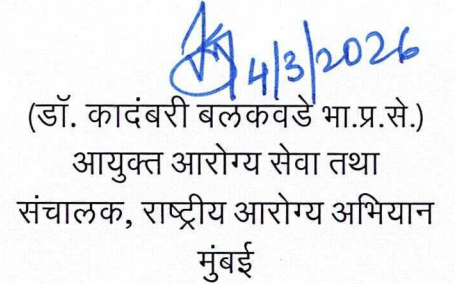 4/3/2026
(डॉ. कादंबरी बलकवडे भा.प्र.से.)
आयुक्त आरोग्य सेवा तथा
संचालक, राष्ट्रीय आरोग्य अभियान
मुंबई